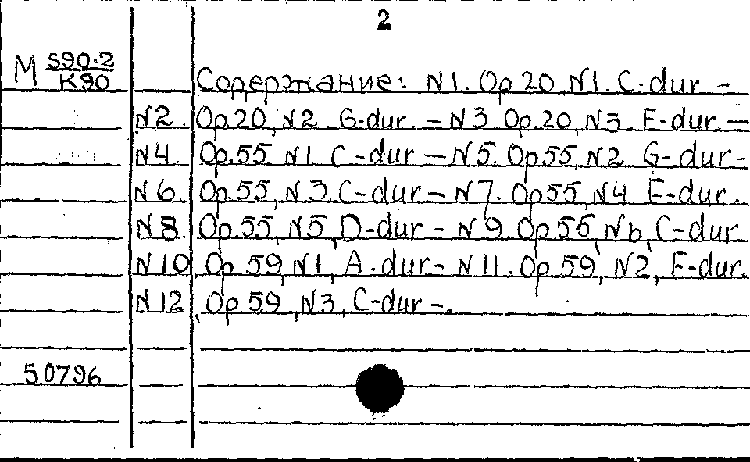 2
М S90-2
К90
Содержание: N1. Op 20, N1. C-dur -
N2 Op 20, N2 G-dur - N3 Op. 20, N3 F-dur -
N4 Op.55 N1 C-dur - N5. Op 55, N2 G-dur -
N6 Op 55, N3 C-dur - N7. Op 55, N4 E-dur.
N8 Op 55, N5, D-dur - N9 Op 56, N6, C-dur
N10 Op 59, N1, A-dur - N11. Op 59, N2, F-dur.
N12 Op 59, N3, C-dur -.
50796